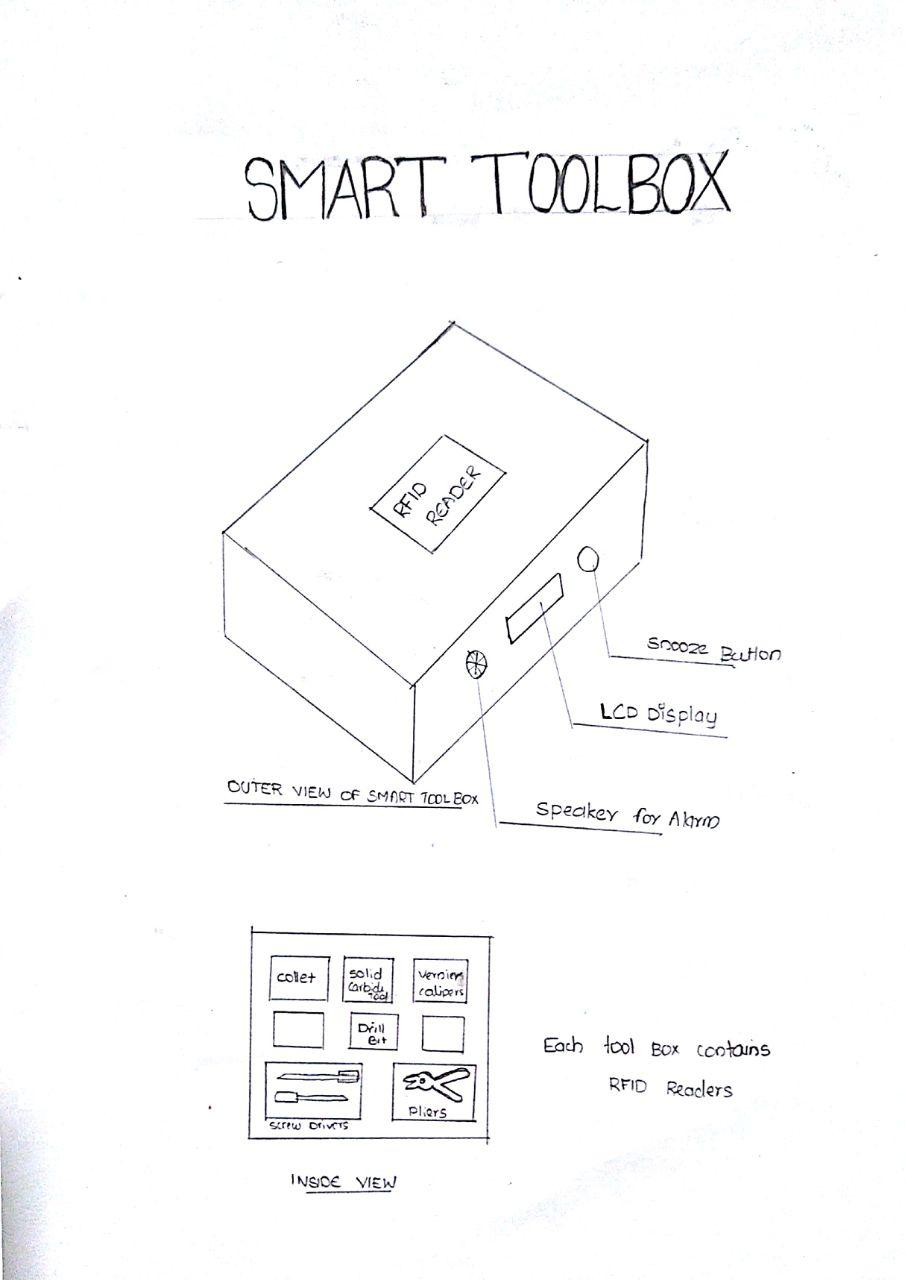 SMART TOOLBOX
RFID
READER
Snooze Button
LCD Display
OUTER VIEW OF SMART TOOLBOX
Speaker for Alarm
collet
solid
Carbide
Tool
Vernier
calipers
Drill
Bit
Screw Drivers
Pliers
Each tool Box contains
RFID Readers
INSIDE VIEW